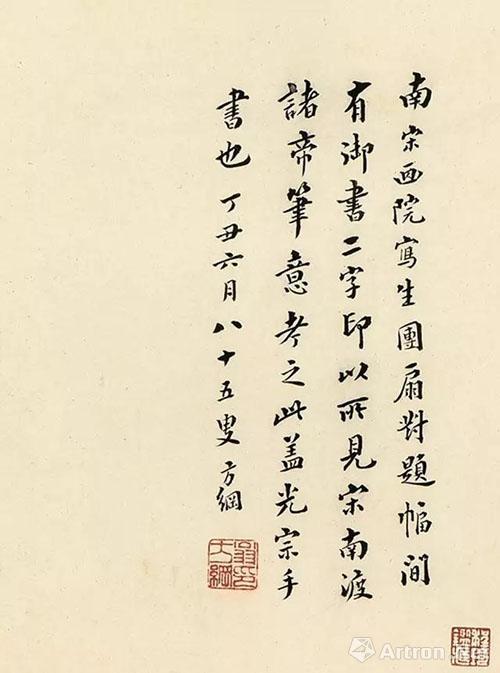 南宋画院寫生團扇對題幅間
有御書二字印以所見宋南渡
諸帝筆意考之此盖光宗手
書也 丁丑六月八十五叟方綱
翁印方綱
Artron